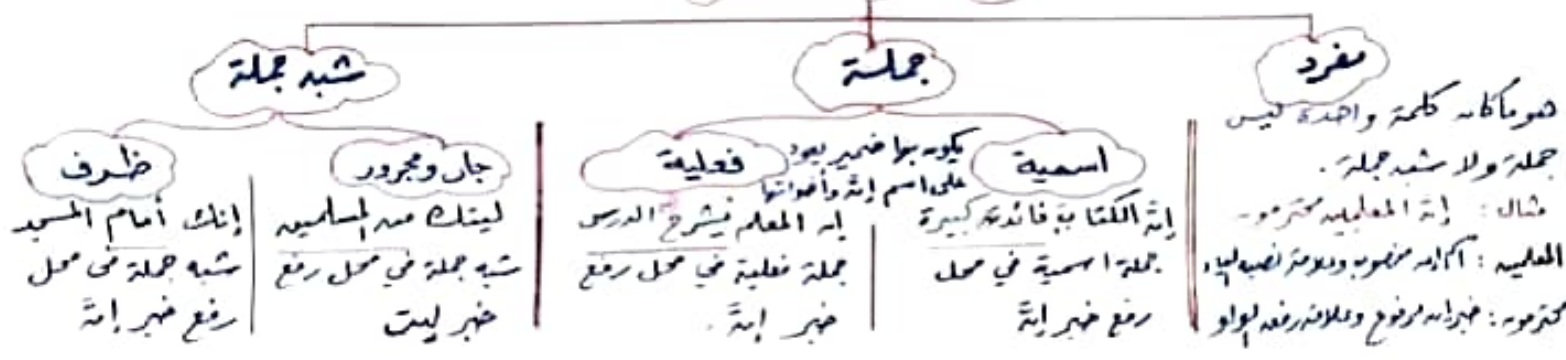 مفرد
هو ما كان كلمة واحدة ليس
جملة ولا شبه جملة .
مثال : إنَّ المعلمين محترمون
المعلمين : اسم إن منصوب وعلامة نصبه الياء
محترمون : خبر إن مرفوع وعلامة رفعه الواو
جملة
يكون بها ضمير يعود
على اسم إنَّ وأخواتها
اسمية
إنَّ الكتاب فائدته كبيرة
جملة اسمية في محل
رفع خبر إنَّ
فعلية
إن المعلم يشرح الدرس
جملة فعلية في محل رفع
خبر إنَّ .
شبه جملة
جار ومجرور
ليتك من المسلمين
شبه جملة في محل رفع
خبر ليت
ظرف
إنك أمام المسجد
شبه جملة في محل
رفع خبر إنَّ